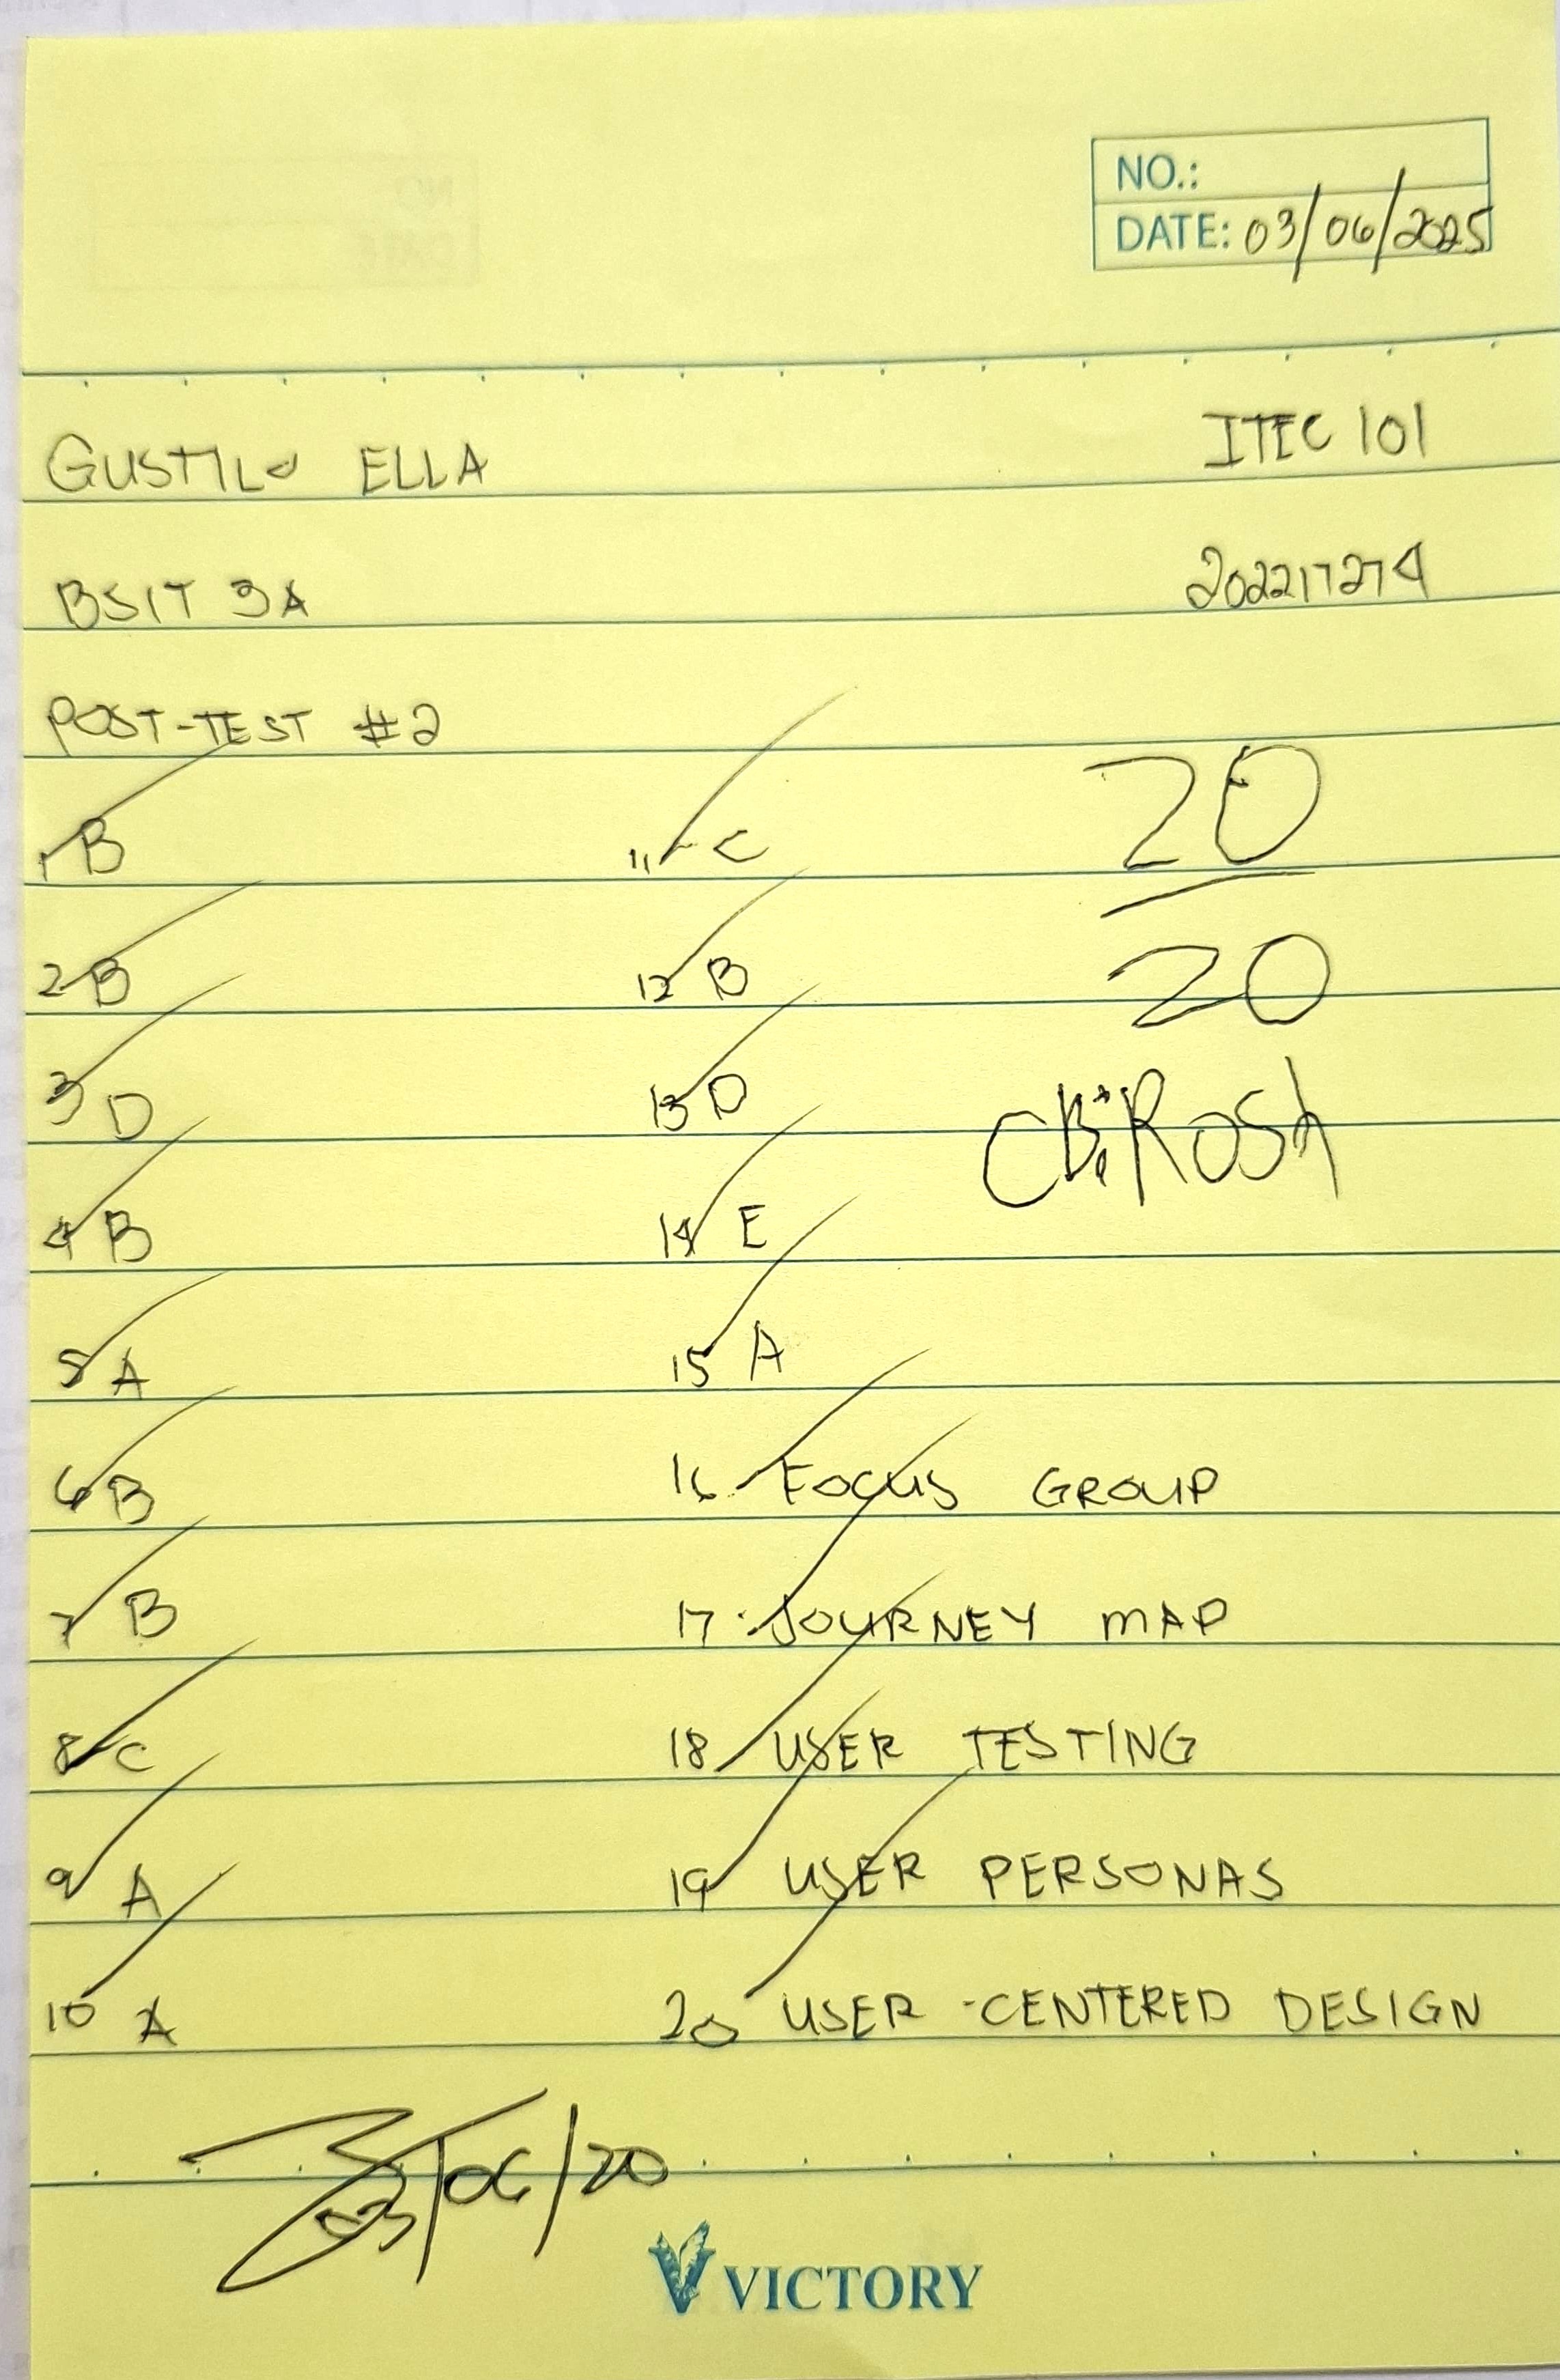 NO.:
DATE: 03/06/2025
GUSTILO ELLA
ITEC 101
BSIT 3A
202217274
POST-TEST #2
20
20
1 B
2 B
3 D
4 B
5 A
6 B
7 B
8 C
9 A
10 A
11 C
12 B
13 D
14 E
15 A
16 FOCUS GROUP
17. JOURNEY MAP
18 USER TESTING
19 USER PERSONAS
20 USER-CENTERED DESIGN
03/06/20
VICTORY